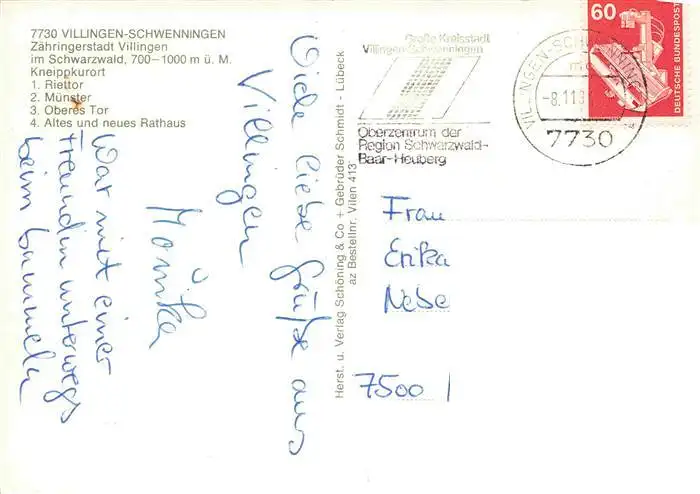 7730 VILLINGEN-SCHWENNINGEN
Zähringerstadt Villingen
im Schwarzwald, 700–1000 m ü. M.
Kneippkurort
1. Riettor
2. Münster
3. Oberes Tor
4. Altes und neues Rathaus
Viele liebe Grüße aus
Villingen
Monika
War mit einer
Freundin unterwegs
beim bummeln
Herst. u. Verlag Schöning & Co + Gebrüder Schmidt - Lübeck
az Bestellnr. Vilen 413
Große Kreisstadt
Villingen-Schwenningen
Oberzentrum der
Region Schwarzwald-
Baar-Heuberg
VILLINGEN-SCHWENNINGEN
7730
60
DEUTSCHE BUNDESPOST
Frau
Erika
Nebe
7500 1